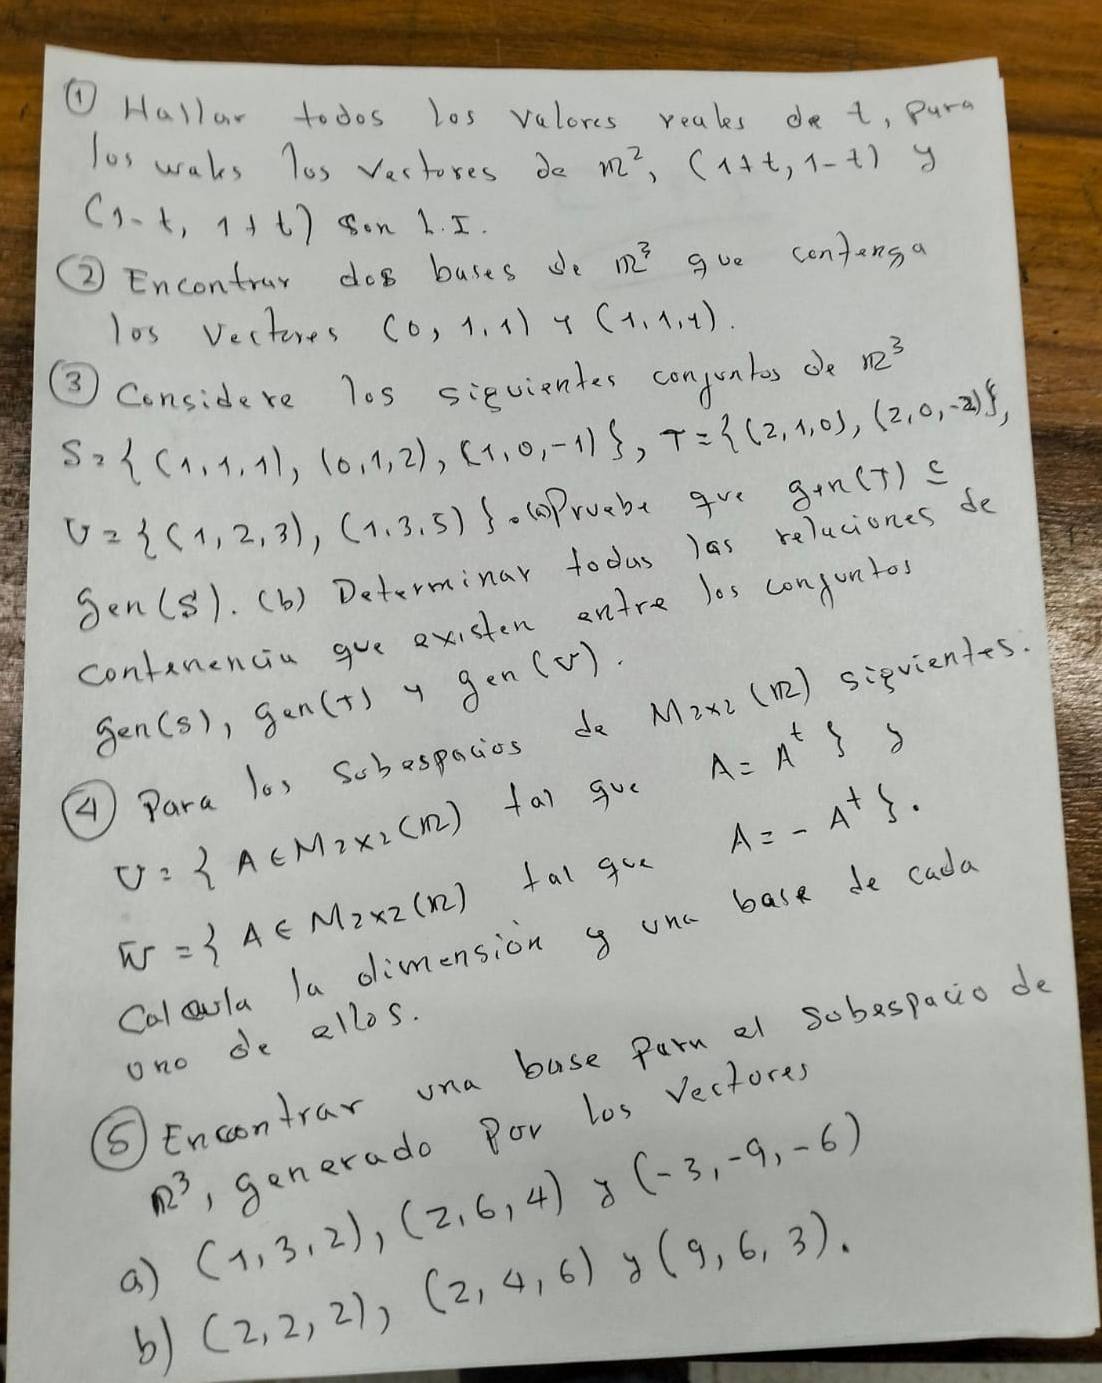 ① Hallar todos los valores reales de t, para
los cuales los vectores de ℝ², (1+t, 1-t) y
(1-t, 1+t) son L.I.
② Encontrar dos bases de ℝ³ que contenga
los vectores (0, 1, 1) y (1, 1, 1).
③ Considere los siguientes conjuntos de ℝ³
S = { (1, 1, 1), (0, 1, 2), (1, 0, -1) }, T = { (2, 1, 0), (2, 0, -2) },
U = { (1, 2, 3), (1, 3, 5) }. (a) Pruebe que gen(T) ⊆
gen(S). (b) Determinar todas las relaciones de
contenencia que existen entre los conjuntos
gen(S), gen(T) y gen(U).
④ Para los subespacios de M2x2 (ℝ) siguientes.
U = { A ∈ M2x2(ℝ) tal que A = Aᵗ } y
W = { A ∈ M2x2(ℝ) tal que A = - Aᵗ }.
Calcula la dimensión y una base de cada
uno de ellos.
⑤ Encontrar una base para el subespacio de
ℝ³, generado por los vectores
a) (1, 3, 2), (2, 6, 4) y (-3, -9, -6)
b) (2, 2, 2), (2, 4, 6) y (9, 6, 3).